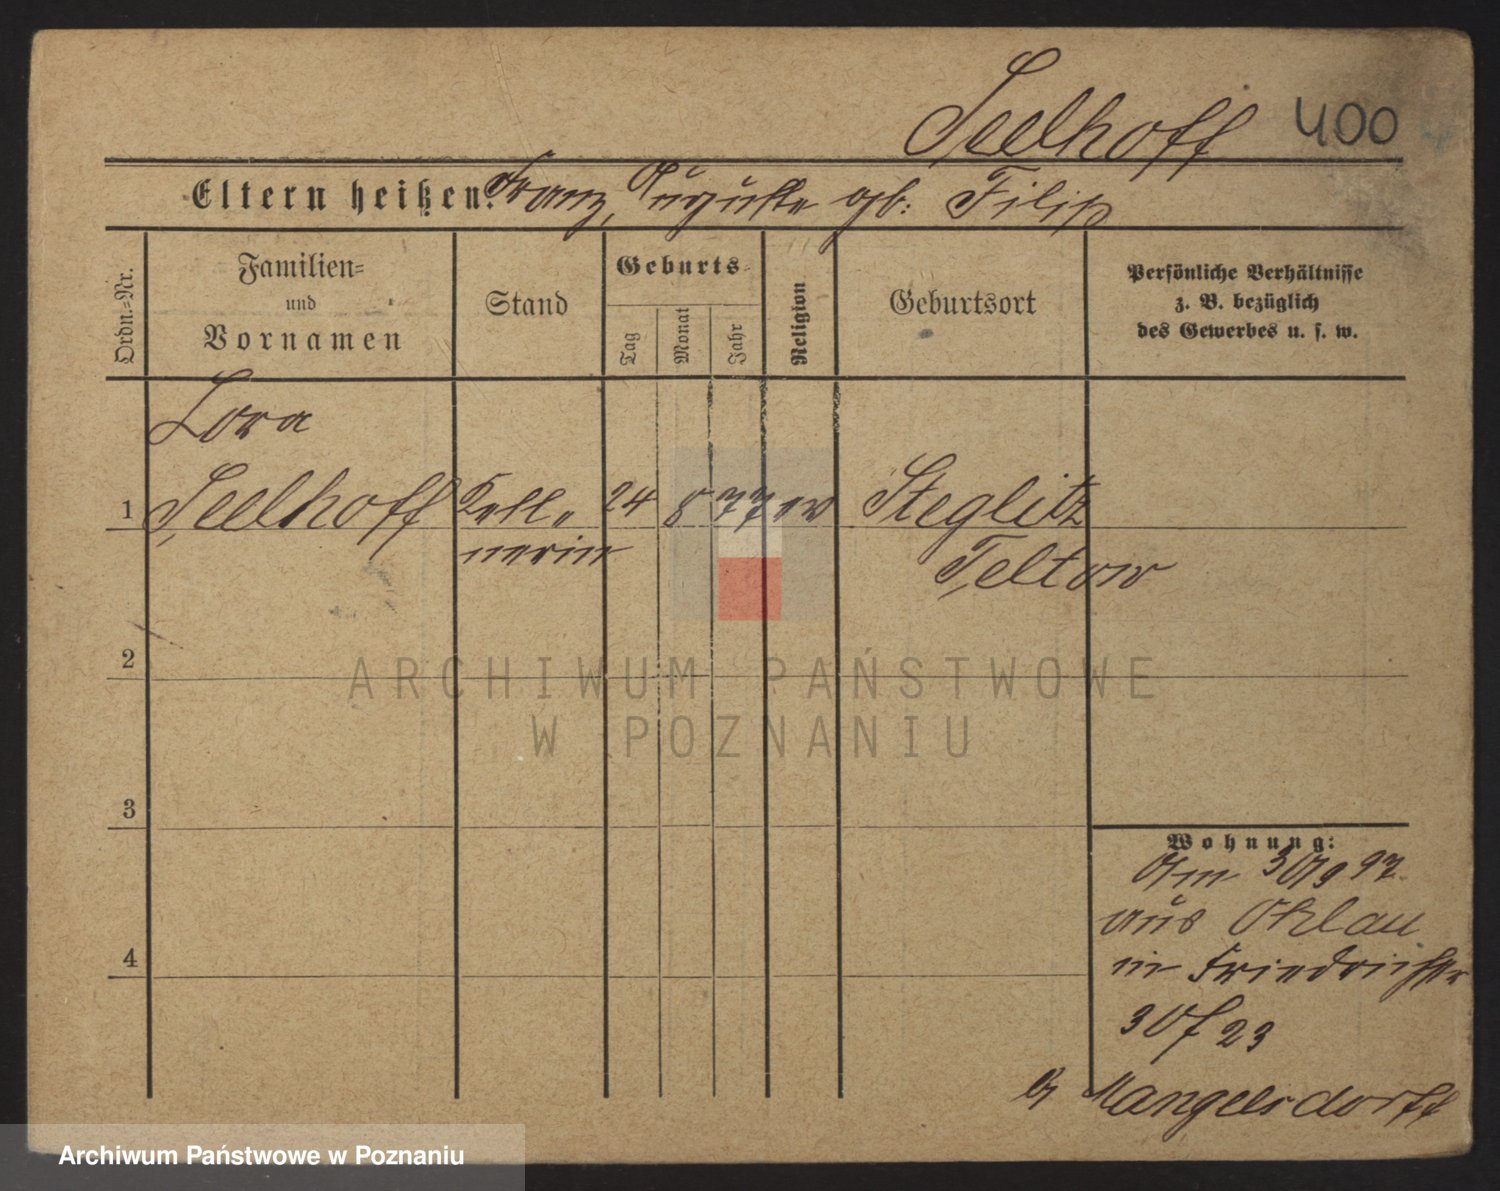 Seelhoff 400
Eltern heißen: Franz, Auguste gb: Filip
Ordn.=Nr.
Familien=
und
Vornamen
Stand
Geburts=
Tag
Monat
Jahr
Religion
Geburtsort
Persönliche Verhältnisse
z. B. bezüglich
des Gewerbes u. s. w.
Lora
1 Seelhoff Kell= 24 8 77 ev Steglitz
nerin Teltow
2
ARCHIWUM PAŃSTWOWE
W POZNANIU
3
Wohnung:
Am 30/9 97
aus Ohlau
in Friedrichstr
30 23
4
b/ Mangelsdorff
Archiwum Państwowe w Poznaniu